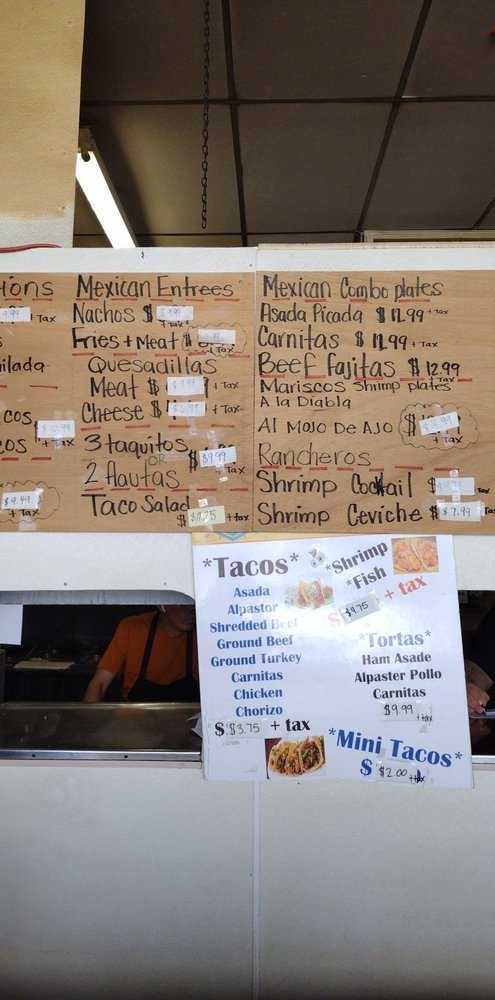 ions
9.99 + Tax
ilada
+ Tax
cos
cos $10.99
+ Tax
$9.49
+ Tax
Mexican Entrees
Nachos $ 9.99
+ Tax
Fries + Meat $
Tax
Quesadillas
Meat $ $9.99 + Tax
Cheese $ + Tax
3 taquitos
OR $9.99
+ Tax
2 flautas
Taco Salad
$ $11.25 + tax
Mexican Combo plates
Asada Picada $ 11.99 + Tax
Carnitas $ 11.99 + Tax
Beef fajitas $ 12.99
+ Tax
Mariscos Shrimp plates
A la Diabla
Al MOJO DE AJO $ $14.99
+ Tax
Rancheros
Shrimp Cocktail $ + Tax
Shrimp Ceviche $ $7.99 Tax
*Tacos*
Asada
Alpastor
Shredded Beef
Ground Beef
Ground Turkey
Carnitas
Chicken
Chorizo
$ $3.75 + tax
*Shrimp
*Fish
$ $4.75 + tax
*Tortas*
Ham Asade
Alpaster Pollo
Carnitas
$9.99
+ tax
*Mini Tacos*
$ $2.00 + tax